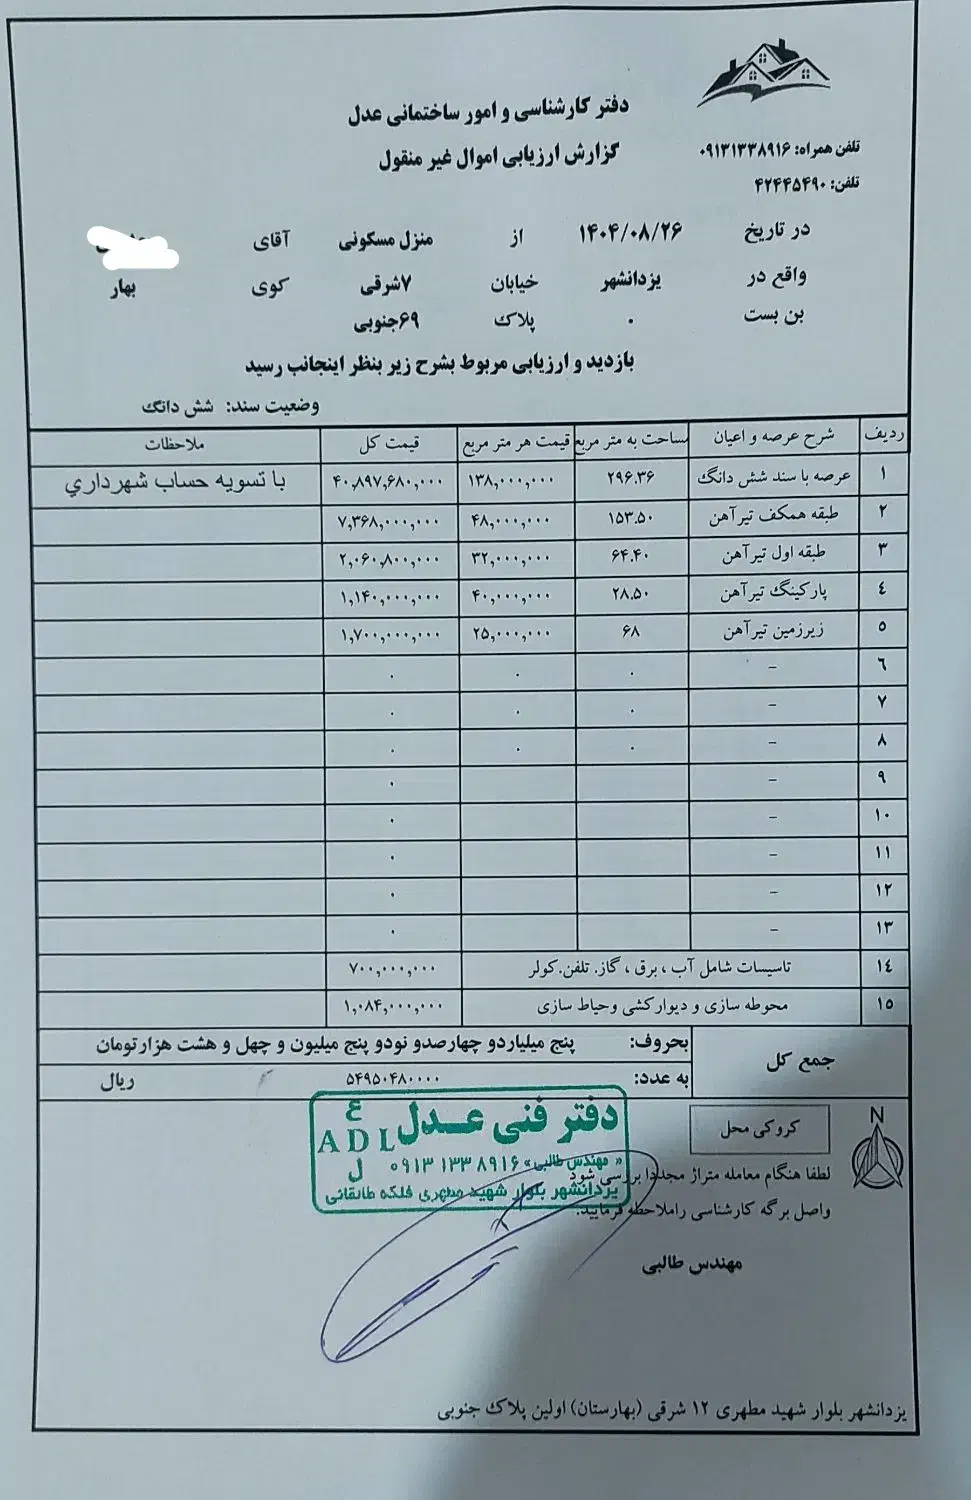 دفتر کارشناسی و امور ساختمانی عدل
گزارش ارزیابی اموال غیر منقول
تلفن همراه: ۰۹۱۳۱۳۳۸۹۱۶
تلفن: ۴۲۴۴۵۴۹۰
در تاریخ ۱۴۰۴/۰۸/۲۶ از منزل مسکونی آقای
واقع در یزدانشهر خیابان ۷شرقی کوی بهار
بن بست ۰ پلاک ۶۹جنوبی
بازدید و ارزیابی مربوط بشرح زیر بنظر اینجانب رسید
وضعیت سند: شش دانگ
ردیف شرح عرصه و اعیان مساحت به متر مربع قیمت هر متر مربع قیمت کل ملاحظات
۱ عرصه با سند شش دانگ ۲۹۶.۳۶ ۱۳۸,۰۰۰,۰۰۰ ۴۰,۸۹۷,۶۸۰,۰۰۰ با تسویه حساب شهرداري
۲ طبقه همکف تیرآهن ۱۵۳.۵۰ ۴۸,۰۰۰,۰۰۰ ۷,۳۶۸,۰۰۰,۰۰۰
۳ طبقه اول تیرآهن ۶۴.۴۰ ۳۲,۰۰۰,۰۰۰ ۲,۰۶۰,۸۰۰,۰۰۰
٤ پارکینگ تیرآهن ۲۸.۵۰ ۴۰,۰۰۰,۰۰۰ ۱,۱۴۰,۰۰۰,۰۰۰
٥ زیرزمین تیرآهن ۶۸ ۲۵,۰۰۰,۰۰۰ ۱,۷۰۰,۰۰۰,۰۰۰
٦ - ۰ ۰ ۰
۷ - ۰ ۰ ۰
۸ - ۰ ۰ ۰
۹ - ۰
۱۰ - ۰
۱۱ - ۰
۱۲ - ۰
۱۳ - ۰
۱٤ تاسیسات شامل آب ، برق ، گاز. تلفن.کولر ۷۰۰,۰۰۰,۰۰۰
۱٥ محوطه سازی و دیوارکشی وحیاط سازی ۱,۰۸۴,۰۰۰,۰۰۰
جمع کل
بحروف: پنج میلیاردو چهارصدو نودو پنج میلیون و چهل و هشت هزارتومان
به عدد: ۵۴۹۵۰۴۸۰۰۰۰ ریال
دفتر فنی عدل
ع
ADL
ل
« مهندس طالبی» ۰۹۱۳ ۱۳۳ ۸۹۱۶
یزدانشهر بلوار شهید مطهری فلکه طالقانی
کروکی محل
N
لطفا هنگام معامله متراژ مجددا بررسی شود
واصل برگه کارشناسی راملاحظه فرمایید.
مهندس طالبی
یزدانشهر بلوار شهید مطهری ۱۲ شرقی (بهارستان) اولین پلاک جنوبی